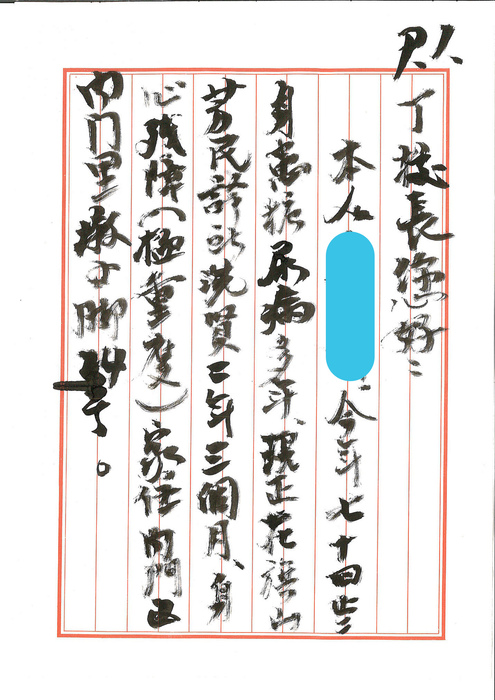 丁校長您好:
本人 今年七十四歲
身患糖尿病多年、現正在旗山
芳民診所洗腎二年三個月、身
心殘障(極重度)家住內門區
內門里墩子腳 號。